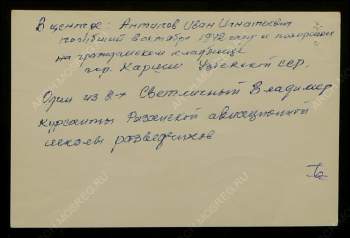 В центре: Антипов Иван Игнатьевич
погибший в октябре 1942 году и похоронен
на гражданском кладбище
гор. Карши Узбекской ССР.
Один из 8-и Светличный Владимир
Курсанты Рязанской авиационной
школы разведчиков